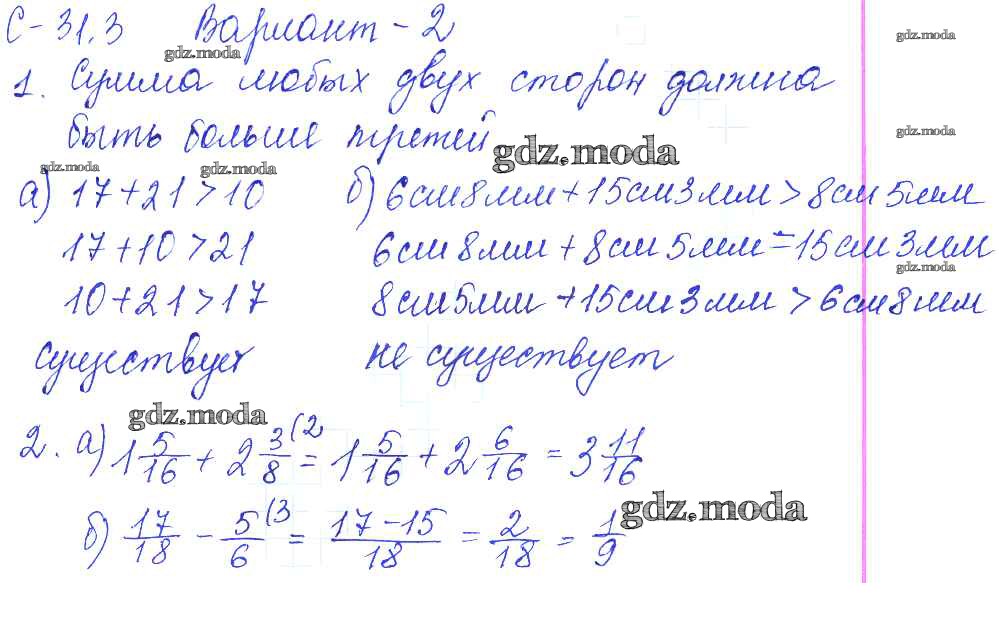 С-31.3 Вариант-2
gdz.moda gdz.moda
1. Сумма любых двух сторон должна
быть больше третей
gdz.moda gdz.moda
gdz.moda gdz.moda
а) 17+21>10 б) 6см8мм+15см3мм>8см5мм
17+10>21 6см8мм+8см5мм=15см3мм
gdz.moda
10+21>17 8см5мм+15см3мм>6см8мм
существует не существует
gdz.moda
2. а) 1 5/16 + 2 3/8 (2 = 1 5/16 + 2 6/16 = 3 11/16
gdz.moda
б) 17/18 - 5/6 (3 = 17-15/18 = 2/18 = 1/9